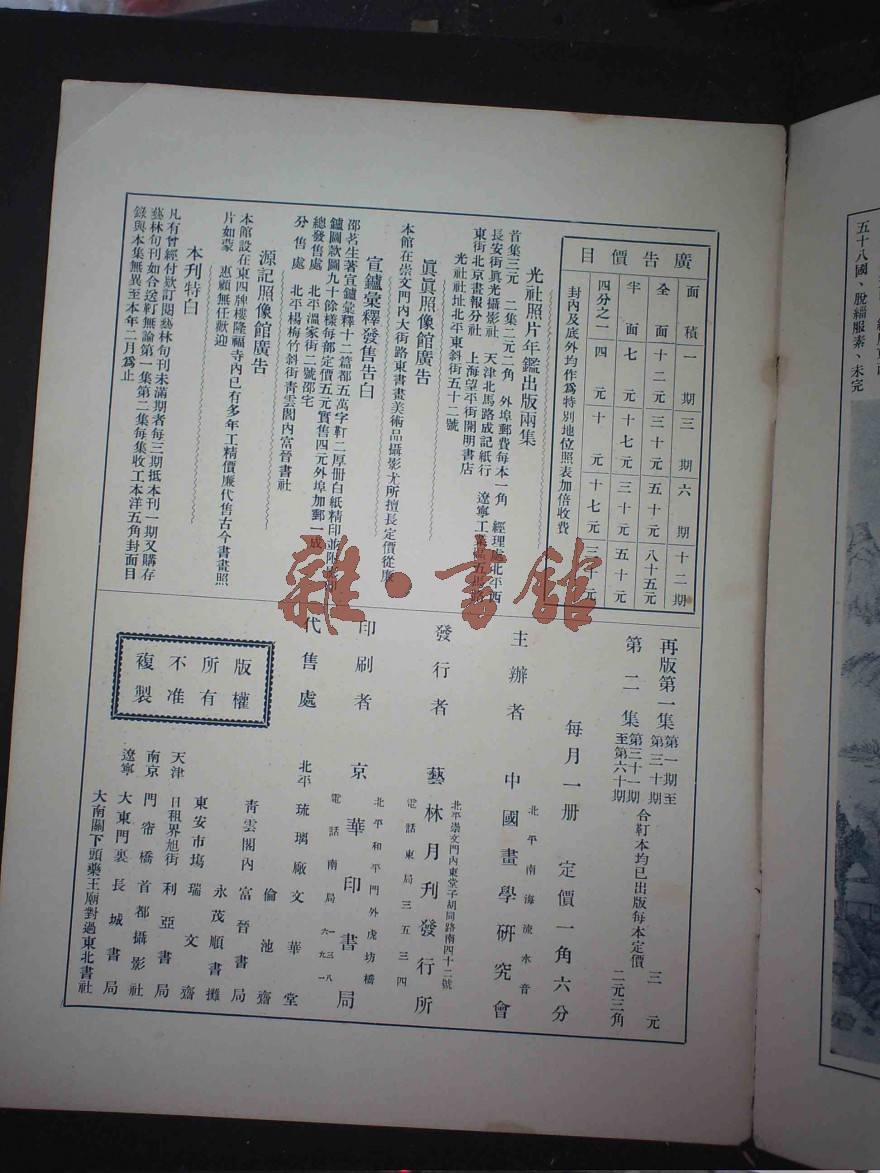 廣告價目
面積 一期 三期 六期 十二期
全面 十二元 三十元 五十元 八十五元
半面 七元 十七元 三十元 五十元
四分之一 四元 十元 十七元 三十元
封內及底外均作爲特別地位照表加倍收費
光社照片年鑑出版兩集
首集三元 二集二元二角 外埠郵費每本一角 經理處北平西
長安街眞光攝影社 天津北馬路成記紙行 遼寧工業區五馬路
東街北京畫報分社 上海望平街開明書店
光社社址北平東斜街五十二號
眞眞照像館廣告
本館在崇文門內大街路東書畫美術品攝影尤所擅長定價從廉
宣鑪彙釋發售告白
邵茗生著宣鑪彙釋十二篇都五萬字訂二厚册白紙精印並附
鑪圖款圖九十餘樣每部定價五元實售四元外埠加郵一成
總發售處 北平溫家街二號邵宅
分售處 北平楊梅竹斜街靑雲閣內富晉書社
源記照像館廣告
本館設在東四牌樓隆福寺內已有多年工精價廉代售古今書畫照
片如蒙 惠顧無任歡迎
本刋特白
凡有曾經付欵訂閱藝林旬刋未滿期者每三期抵本刋一期又購存
藝林旬刋如合送訂無論第一集第二集每集收工本洋五角封面目
錄與本集無異至本年二月爲止
再版第一集第一期至第三十期
第二集第三十一期至第六十期
合訂本均已出版每本定價 三元 二元三角
每月一册 定價一角六分
主辦者 中國畫學研究會
北平南海流水音
發行者 藝林月刋發行所
北平崇文門內東堂子胡同路南四十二號
電話東局三五三四
印刷者 京華印書局
北平和平門外虎坊橋
電話南局 一三八 六九一
代售處
北平 琉璃廠文華堂
倫池齋
靑雲閣內富晉書局
永茂順書攤
東安市塲瑞文齋
天津 日租界旭街利亞書局
南京 門帘橋首都攝影社
遼寧 大東門裏長城書局
大南關下頭藥王廟對過東北書社
版權所有不准複製
五十八國、脫緇服素、未完
雜·書館